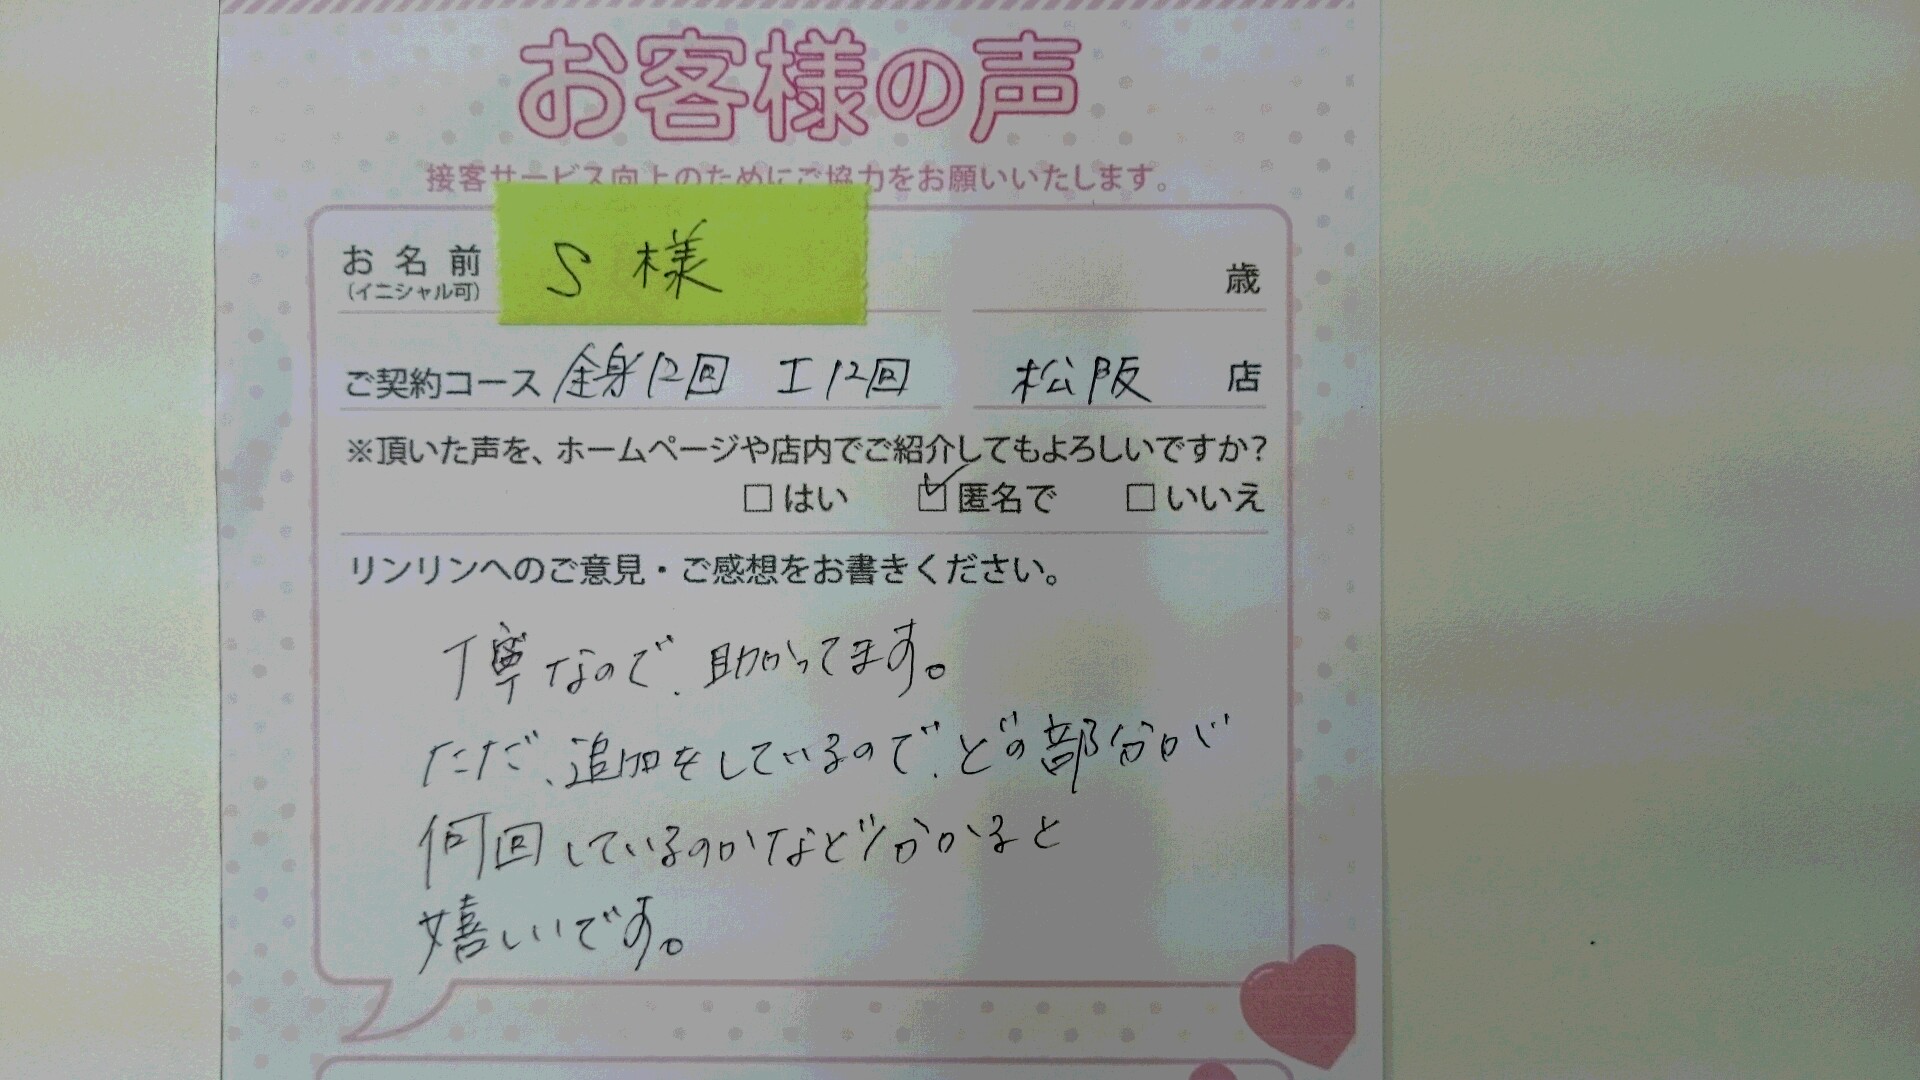 お客様の声
接客サービス向上のためにご協力をお願いいたします。
お名前 S 様 歳
(イニシャル可)
ご契約コース 全身12回 I12回 松阪 店
※頂いた声を、ホームページや店内でご紹介してもよろしいですか?
□はい ☑匿名で □いいえ
リンリンへのご意見・ご感想をお書きください。
丁寧なので、助かってます。
ただ、追加をしているので、どの部分が
何回しているのかなど分かると
嬉しいです。